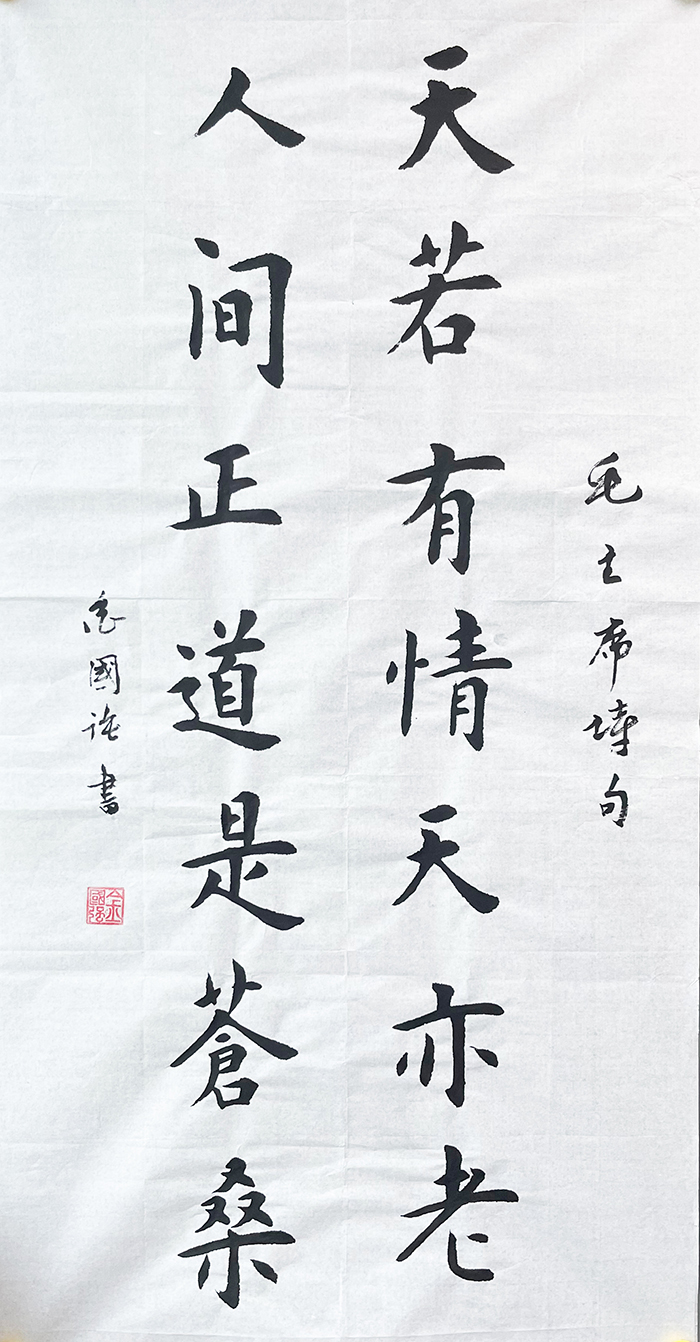 毛主席詩句
天若有情天亦老
人间正道是蒼桑
金國强書
金國强